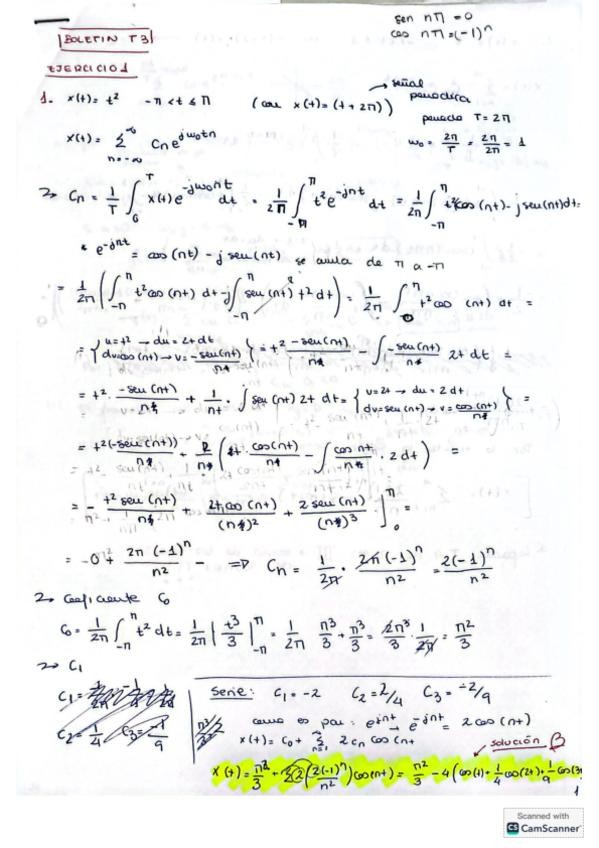 sen nπ = 0
cos nπ = (-1)^n
BOLETIN T3
EJERCICIO 1
1. x(t) = t² -π < t ≤ π (con x(t) = (t + 2π)) → señal periodica
periodo T = 2π
x(t) = Σ_{n=-∞}^{∞} Cn e^{jω₀tn} ω₀ = 2π/T = 2π/2π = 1
→ Cn = 1/T ∫₀^T x(t) e^{-jω₀nt} dt = 1/2π ∫_{-π}^{π} t² e^{-jnt} dt = 1/2π ∫_{-π}^{π} t²(cos(nt) - j sen(nt)dt =
* e^{-jnt} = cos(nt) - j sen(nt) se anula de π a -π
= 1/2π (∫_{-π}^{π} t² cos(nt) dt - j∫_{-π}^{π} sen(nt) t² dt) = 1/2π ∫₀^π t² cos(nt) dt =
= { u = t² → du = 2t dt
dv = cos(nt) → v = -sen(nt)/n } = t² · -sen(nt)/n - ∫ -sen(nt)/n 2t dt =
= t² · -sen(nt)/n + 1/n · ∫ sen(nt) 2t dt = { u = 2t → du = 2dt
dv = sen(nt) → v = cos(nt)/n } =
= t²(-sen(nt))/n + (2t · cos(nt)/n - ∫ cos nt/n · 2dt) =
= - t² sen(nt)/n + 2t cos(nt)/(n)² + 2 sen(nt)/(n)³ ]₀^π
= -0 + 2π(-1)^n/n² - ⇒ Cn = 1/2π · 2π(-1)^n/n² = 2(-1)^n/n²
→ Coeficiente C₀
C₀ = 1/2π ∫_{-π}^{π} t² dt = 1/2π | t³/3 |_{-π}^{π} = 1/2π π³/3 + π³/3 = 2π³/3 · 1/2π = π²/3
→ C₁
Serie: C₁ = -2 C₂ = 2/4 C₃ = -2/9
C₂ = 1/4 C₃ = -1/9
como es par: e^{jnt} → e^{-jnt} = 2cos(nt)
x(t) = C₀ + Σ_{n=1}^{∞} 2 Cn cos(nt
solución B
x(t) = π²/3 + 2(2(-1)^n/n²) cos(nt) = π²/3 - 4(cos(t) + 1/4 cos(2t) + 1/9 cos(3t
1
Scanned with
CS CamScanner